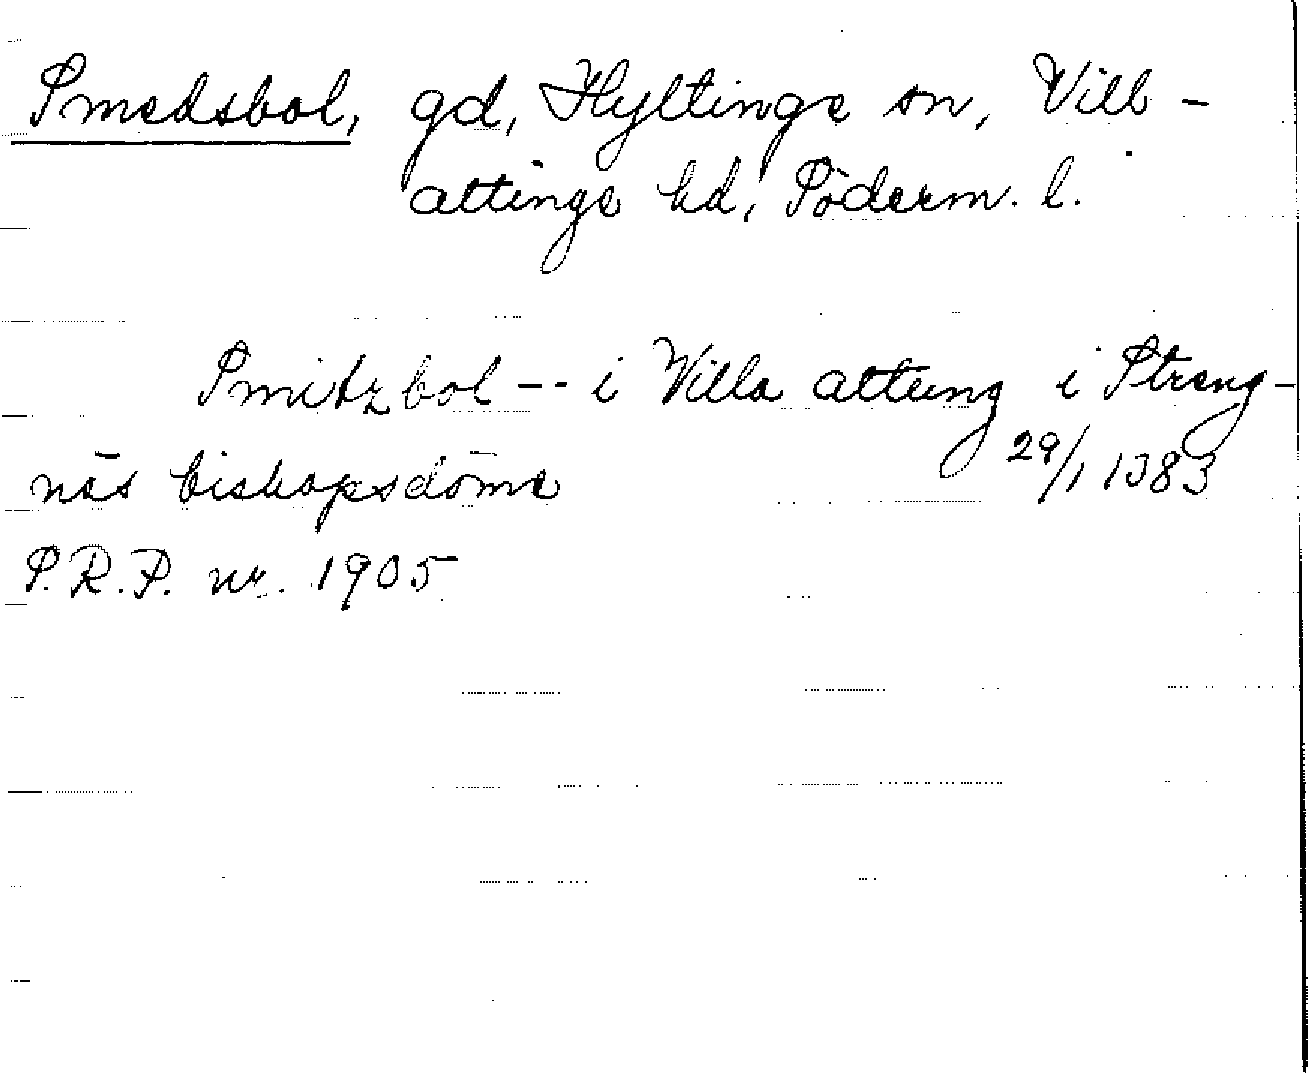 Smedsbol, gd, Hyltinge sn, Vill-
åttinge hd, Söderm. l.
Smitzbol -- i Villa attung i Streng-
näs biskopsdöme 29/1 1383
S.R.P. nr. 1905